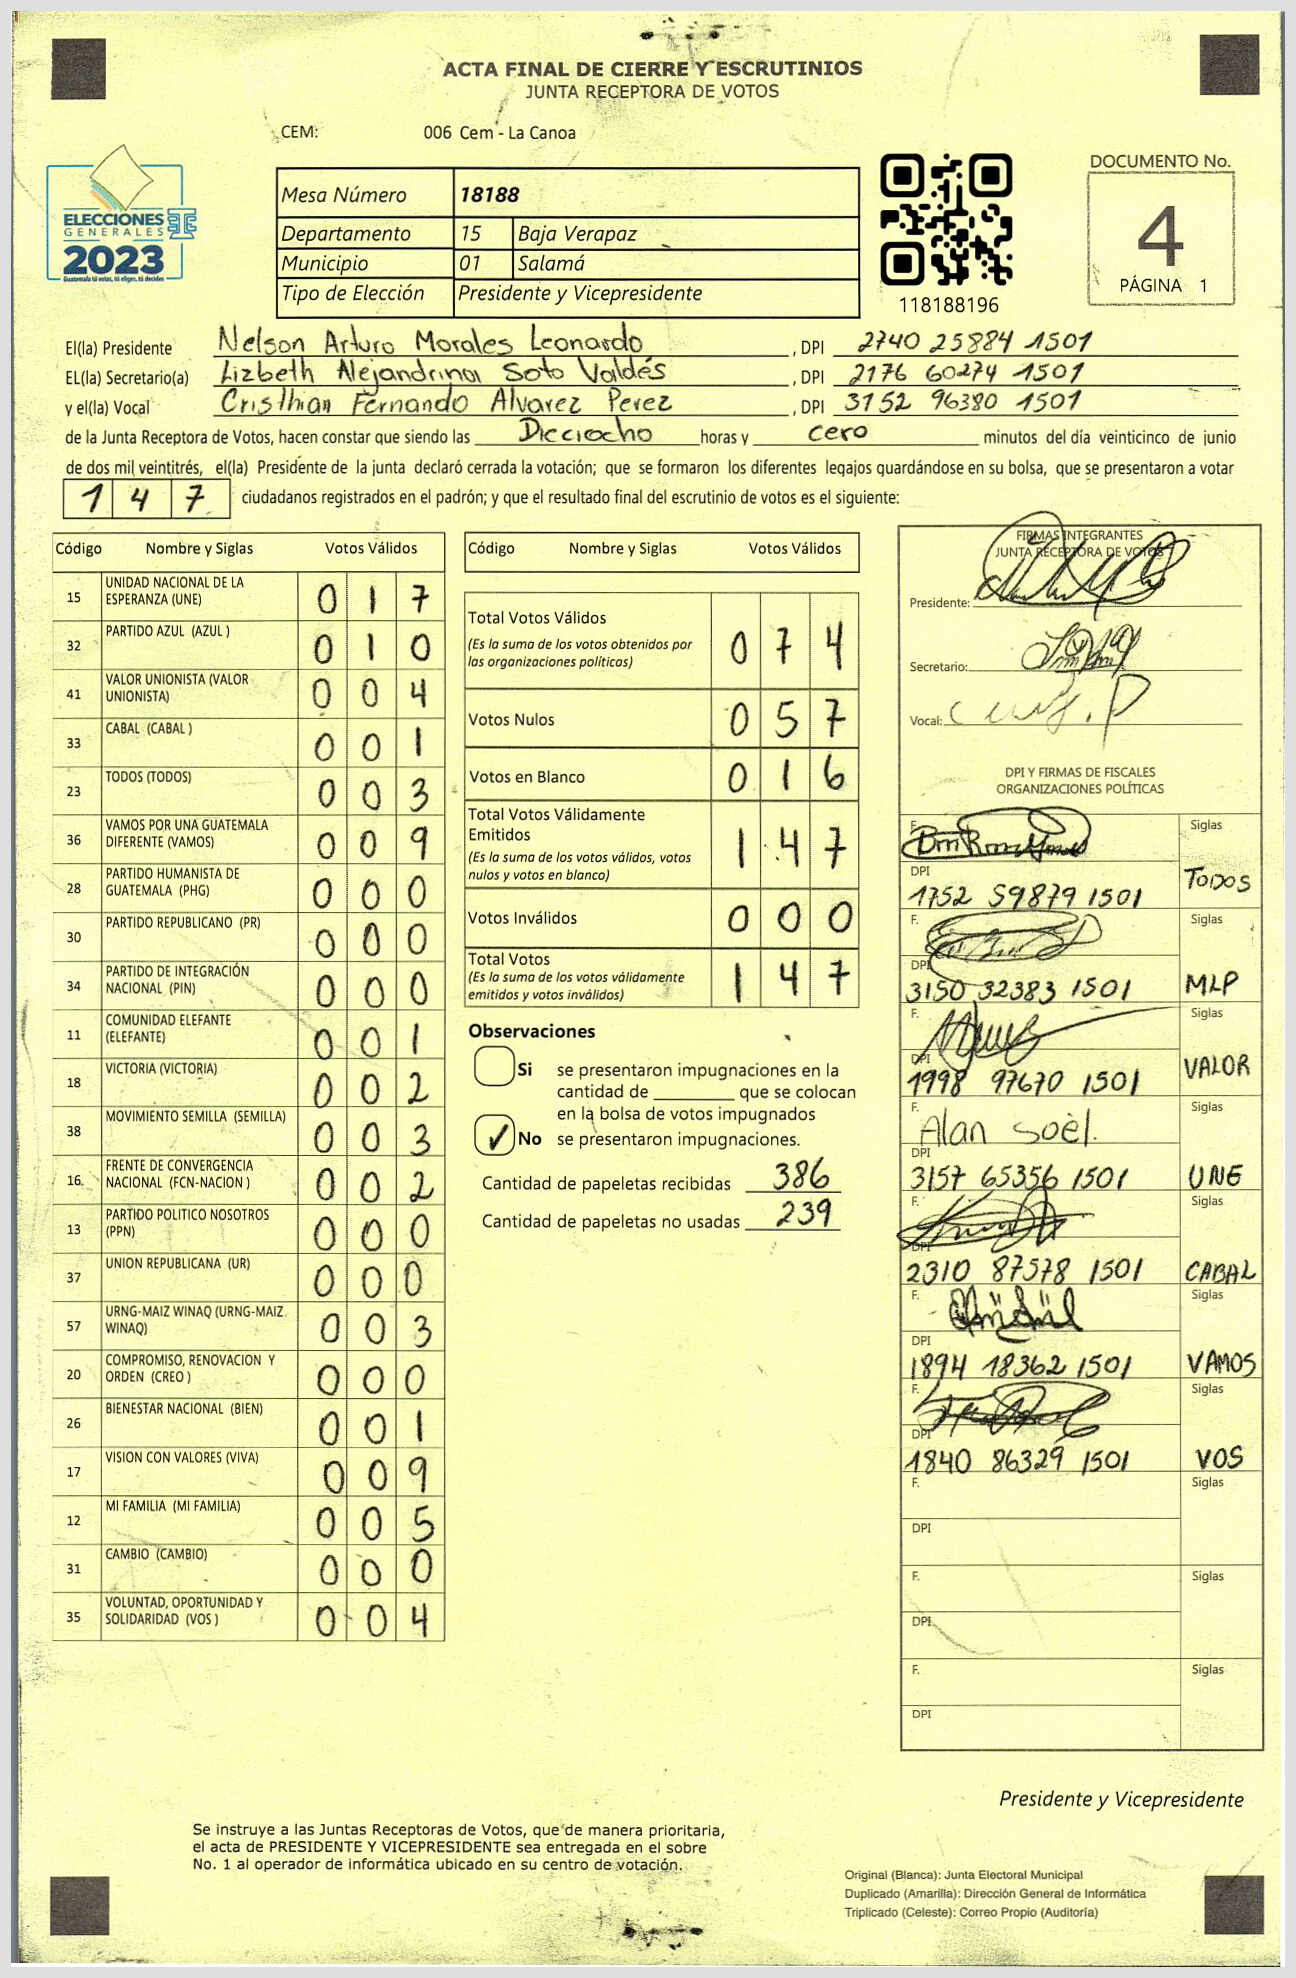 ACTA FINAL DE CIERRE Y ESCRUTINIOS
JUNTA RECEPTORA DE VOTOS
CEM: 006 Cem - La Canoa
ELECCIONES
GENERALES
2023
Guatemala tú votas, tú eliges, tú decides
Mesa Número 18188
Departamento 15 Baja Verapaz
Municipio 01 Salamá
Tipo de Elección Presidente y Vicepresidente
118188196
DOCUMENTO No.
4
PÁGINA 1
El(la) Presidente Nelson Arturo Morales Leonardo , DPI 2740 25884 1501
EL(la) Secretario(a) Lizbeth Alejandrina Soto Valdés , DPI 2176 60274 1501
y el(la) Vocal Cristhian Fernando Alvarez Perez , DPI 3152 96380 1501
de la Junta Receptora de Votos, hacen constar que siendo las Dieciocho horas y cero minutos del día veinticinco de junio
de dos mil veintitrés, el(la) Presidente de la junta declaró cerrada la votación; que se formaron los diferentes legajos guardándose en su bolsa, que se presentaron a votar
1 4 7 ciudadanos registrados en el padrón; y que el resultado final del escrutinio de votos es el siguiente:
Código Nombre y Siglas Votos Válidos
15 UNIDAD NACIONAL DE LA ESPERANZA (UNE) 0 1 7
32 PARTIDO AZUL (AZUL ) 0 1 0
41 VALOR UNIONISTA (VALOR UNIONISTA) 0 0 4
33 CABAL (CABAL ) 0 0 1
23 TODOS (TODOS) 0 0 3
36 VAMOS POR UNA GUATEMALA DIFERENTE (VAMOS) 0 0 9
28 PARTIDO HUMANISTA DE GUATEMALA (PHG) 0 0 0
30 PARTIDO REPUBLICANO (PR) 0 0 0
34 PARTIDO DE INTEGRACIÓN NACIONAL (PIN) 0 0 0
11 COMUNIDAD ELEFANTE (ELEFANTE) 0 0 1
18 VICTORIA (VICTORIA) 0 0 2
38 MOVIMIENTO SEMILLA (SEMILLA) 0 0 3
16 FRENTE DE CONVERGENCIA NACIONAL (FCN-NACION ) 0 0 2
13 PARTIDO POLITICO NOSOTROS (PPN) 0 0 0
37 UNION REPUBLICANA (UR) 0 0 0
57 URNG-MAIZ WINAQ (URNG-MAIZ WINAQ) 0 0 3
20 COMPROMISO, RENOVACION Y ORDEN (CREO ) 0 0 0
26 BIENESTAR NACIONAL (BIEN) 0 0 1
17 VISION CON VALORES (VIVA) 0 0 9
12 MI FAMILIA (MI FAMILIA) 0 0 5
31 CAMBIO (CAMBIO) 0 0 0
35 VOLUNTAD, OPORTUNIDAD Y SOLIDARIDAD (VOS ) 0 0 4
Código Nombre y Siglas Votos Válidos
Total Votos Válidos 0 7 4
(Es la suma de los votos obtenidos por
las organizaciones políticas)
Votos Nulos 0 5 7
Votos en Blanco 0 1 6
Total Votos Válidamente
Emitidos 1 4 7
(Es la suma de los votos válidos, votos
nulos y votos en blanco)
Votos Inválidos 0 0 0
Total Votos 1 4 7
(Es la suma de los votos válidamente
emitidos y votos inválidos)
Observaciones
Si se presentaron impugnaciones en la
cantidad de ________ que se colocan
en la bolsa de votos impugnados
✓ No se presentaron impugnaciones.
Cantidad de papeletas recibidas 386
Cantidad de papeletas no usadas 239
FIRMAS INTEGRANTES
JUNTA RECEPTORA DE VOTOS
Presidente:
Secretario:
Vocal:
DPI Y FIRMAS DE FISCALES
ORGANIZACIONES POLÍTICAS
F. Siglas
DPI 1752 59879 1501 TODOS
F. Siglas
DPI 3150 32383 1501 MLP
F. Siglas
DPI 1998 97670 1501 VALOR
F. Alan Soèl. Siglas
DPI 3157 65356 1501 UNE
F. Siglas
DPI 2310 87578 1501 CABAL
F. Siglas
DPI 1894 18362 1501 VAMOS
F. Siglas
DPI 1840 86329 1501 VOS
F. Siglas
DPI
F. Siglas
DPI
F. Siglas
DPI
Presidente y Vicepresidente
Se instruye a las Juntas Receptoras de Votos, que de manera prioritaria,
el acta de PRESIDENTE Y VICEPRESIDENTE sea entregada en el sobre
No. 1 al operador de informática ubicado en su centro de votación.
Original (Blanca): Junta Electoral Municipal
Duplicado (Amarilla): Dirección General de Informática
Triplicado (Celeste): Correo Propio (Auditoría)